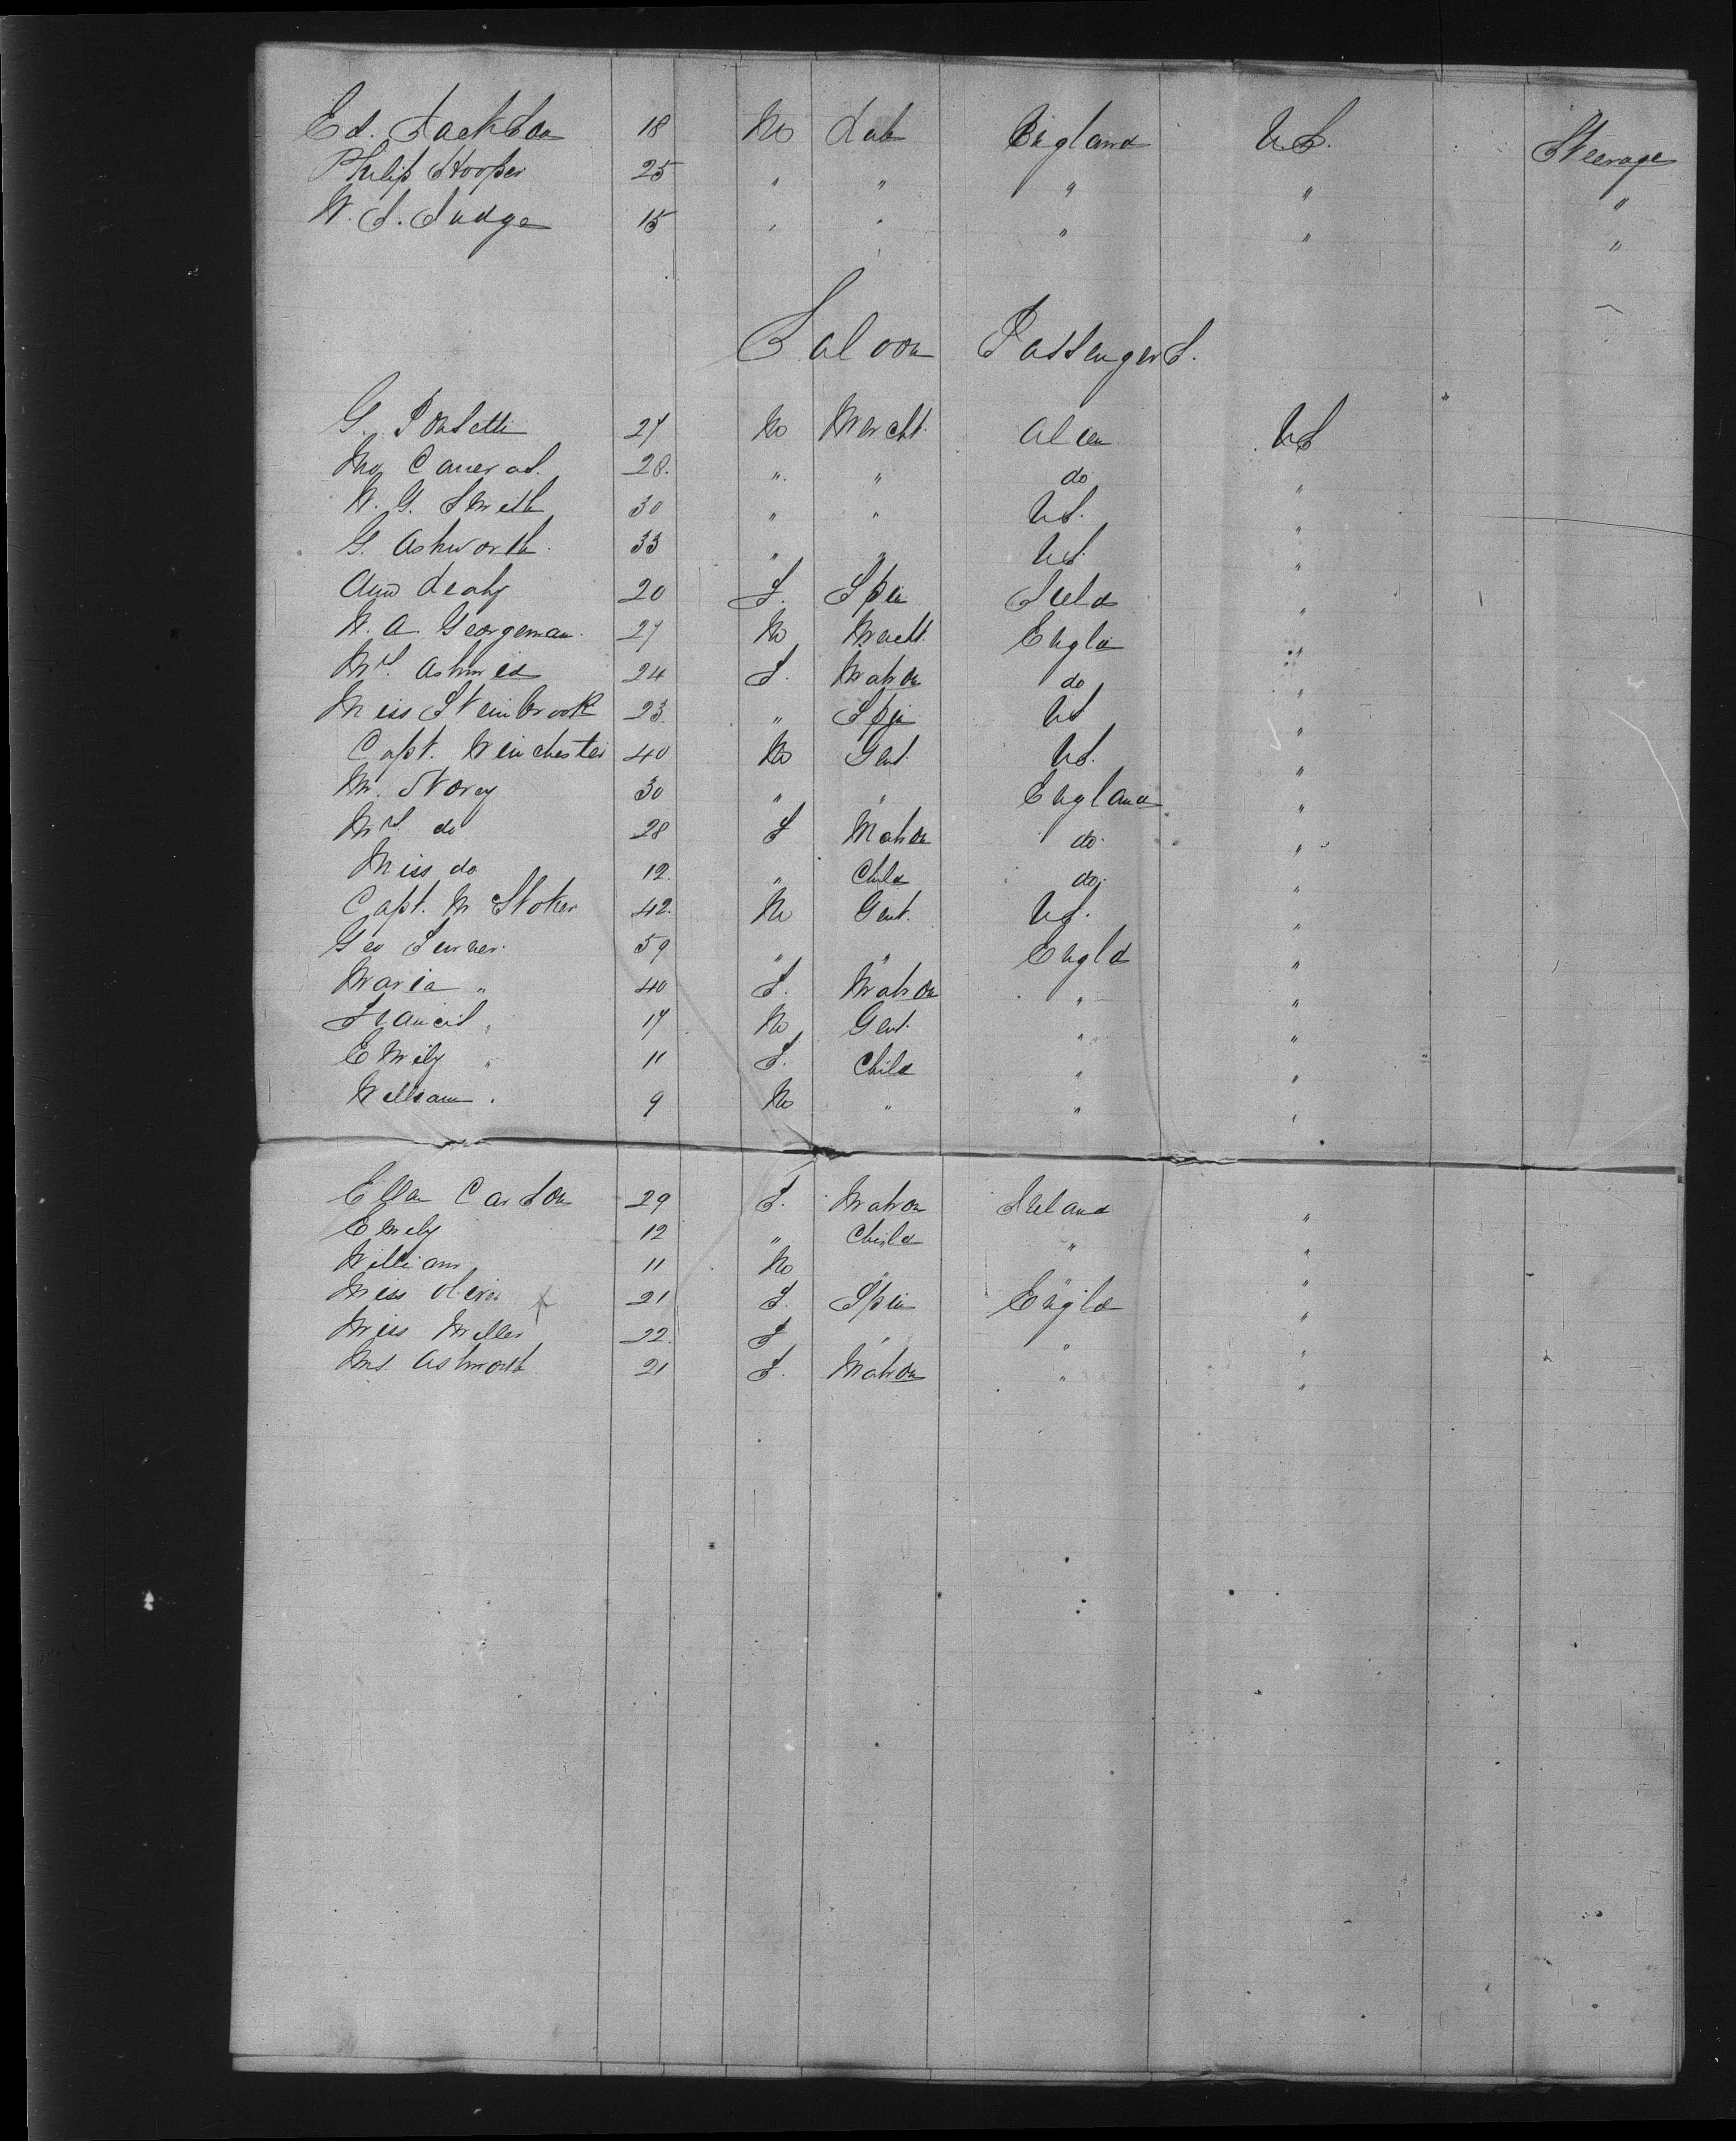 Ed. Jackson 18 M Lab England U.S. Steerage
Philip Hooper 25 " " " " "
W. S. Judge 15 " " " " "
Saloon Passengers.
G. 27 M Mercht. Alien U.S
28. " " do "
W. G. Smith 30 " " U.S. "
G. Ashworth. 33 " " U.S. "
Ann Leahy 20 F. Spin Ireld "
W. A. Georgeman. 27 M Mercht. Engld "
Mrs. 24 F. Matron do "
Miss Steinbrook 23. " Spin U.S "
Capt. Winchester 40 M Gent. U.S. "
Mr. Storey 30 " " England "
Mrs. do 28 F Matron do. "
Miss do 12. " Child do. "
Capt. M Stoker 42. M Gent. U.S. "
Geo Turner. 59 " " Engld "
Maria " 40 F. Matron " "
Francis " 17 M Gent. " "
Emily " 11 F. Child " "
William " 9 M " " "
Ellen Carson 29 F. Matron Ireland "
Emily 12 " Child " "
William 11 M " " "
Miss Oliver 21 F. Spin Engld "
Miss Miller 22. F " " "
Mrs. Ashworth 21 F. Matron " "